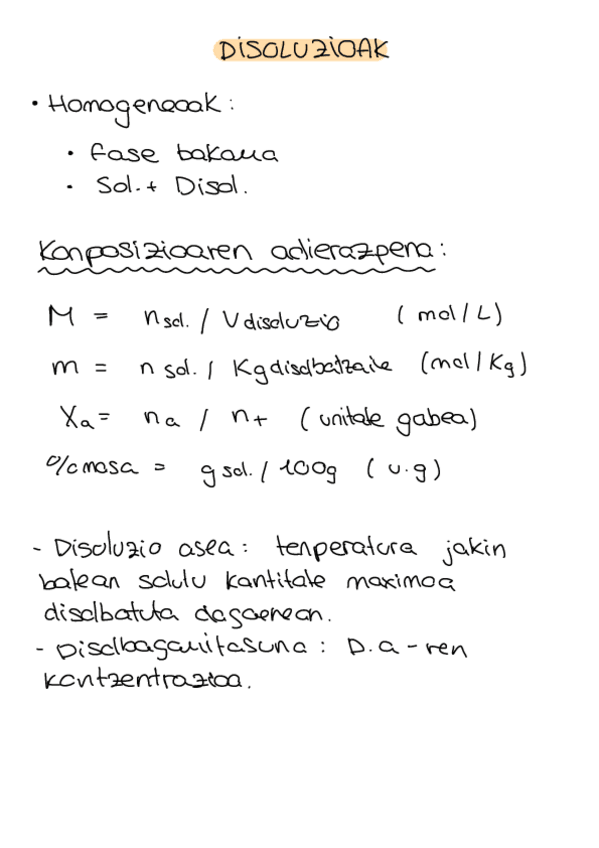 DISOLUZIOAK
• Homogeneoak:
• Fase bakarra
• Sol. + Disol.
Konposizioaren adierazpena:
M = n sol. / V disoluzio (mol/L)
m = n sol. / Kg disolbatzaile (mol/Kg)
Xa = na / n+ (unitate gabea)
% masa = g sol. / 100g (u.g)
- Disoluzio asea: tenperatura jakin
batean solutu kantitate maximoa
disolbatuta dagoenean.
- Disolbagarritasuna: D.a-ren
kontzentrazioa.